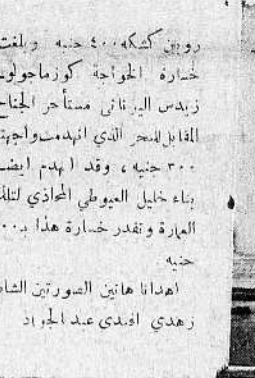 روبين كشكه ٤٠٠ جنيه وبلغت
خسارة الخواجة كوزماجولو
زيدس اليوناني مستأجر الجناح
المقابل للبحر الذي انهدمت واجهته
٣٠٠ جنيه، وقد انهدم ايضـ
بناء خليل العيوطي المحاذي لتلك
العمارة وتقدر خسارة هذا بـ ٠٠
جنيه
اهدانا هاتين الصورتين الشا
زهدي افندي عبد الجواد